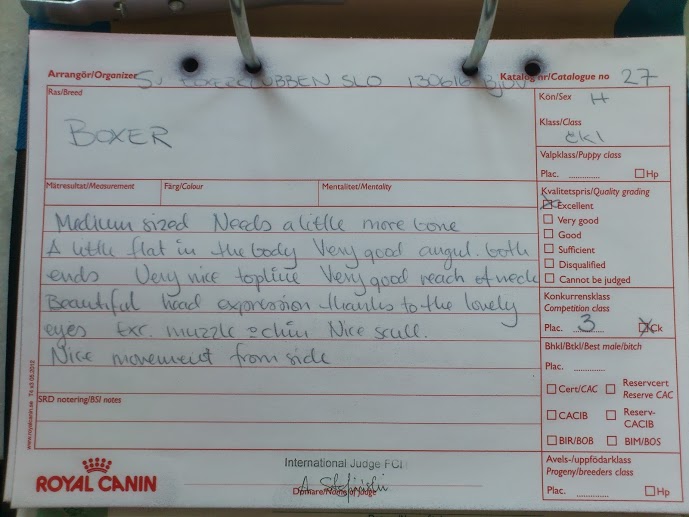 Arrangör/Organizer S. BOXERKLUBBEN SLO 130616
Katalog nr/Catalogue no 27
Ras/Breed
BOXER
Kön/Sex H
Klass/Class
ökl
Valpklass/Puppy class
Plac. ............ Hp
Mätresultat/Measurement Färg/Colour Mentalitet/Mentality
Kvalitetspris/Quality grading
Excellent
Very good
Good
Sufficient
Disqualified
Cannot be judged
Medium sized Needs a little more bone
A little flat in the body Very good angul. both
ends Very nice topline Very good reach of neck
Beautiful head expression thanks to the lovely
eyes Exc. muzzle & chin Nice scull.
Nice movement from side
Konkurrensklass
Competition class
Plac. 3 Ck
Bhkl/Btkl/Best male/bitch
Plac. ............
Cert/CAC Reservcert Reserve CAC
CACIB Reserv-CACIB
BIR/BOB BIM/BOS
SRD notering/BSI notes
Avels-/uppfödarklass
Progeny/breeders class
Plac. ............ Hp
International Judge FCI
Domare/Name of judge
ROYAL CANIN